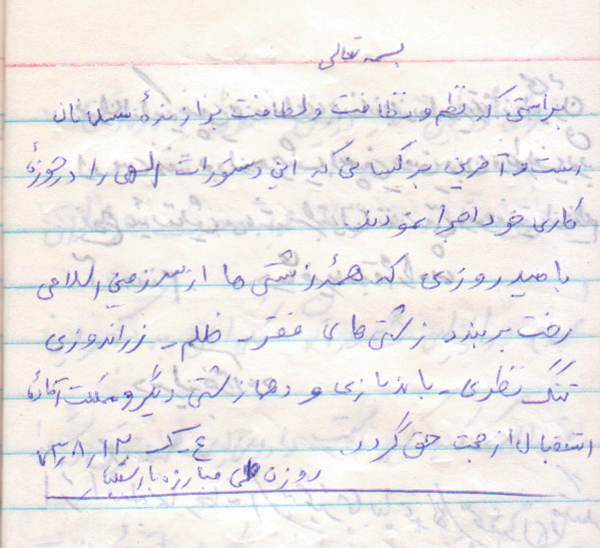 بسمه تعالی
براستی که نظم و نظافت و لطافت برازندهٔ مسلمانان
است و آفرین بر کسانی که این دستورات الهی را در حوزهٔ
کاری خود اجرا نمودند.
بامید روزی که همهٔ زشتی ها از سرزمین اسلامی
رخت بربندد زشتی های فقر - ظلم - زراندوزی
تنگ نظری - باندبازی و دهها زشتی دیگر و مملکت آمادهٔ
استقبال از حجت حق گردد. ع - ک ۷۳/۸/۱۳
روز ملی مبارزه با استکبار